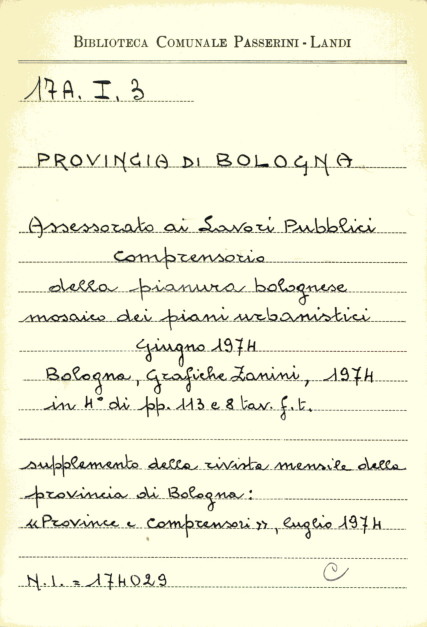 BIBLIOTECA COMUNALE PASSERINI - LANDI
17A. I. 3
PROVINCIA DI BOLOGNA
Assessorato ai Lavori Pubblici
Comprensorio
della pianura bolognese
mosaico dei piani urbanistici
Giugno 1974
Bologna, Grafiche Zanini, 1974
in 4° di pp. 113 e 8 tav. f.t.
supplemento della rivista mensile della
provincia di Bologna:
«Province e Comprensori», luglio 1974
N.I. = 174029
C